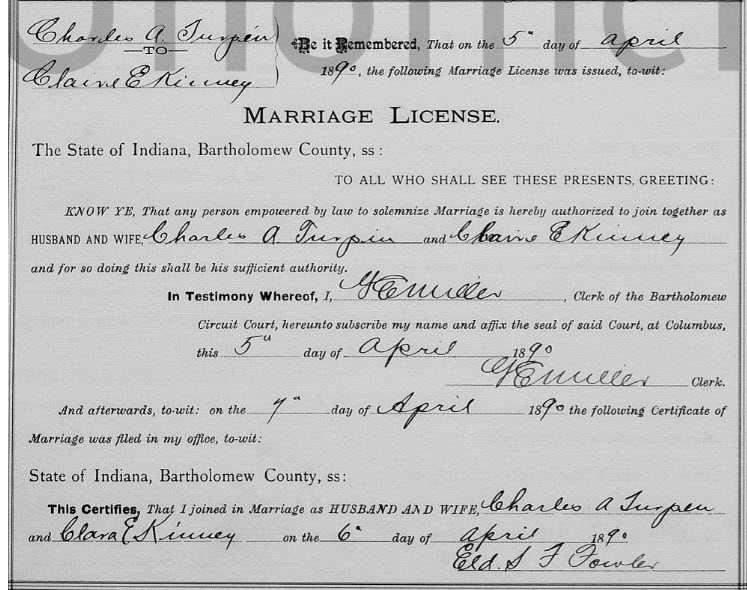 Charles A. Turpen
—TO—
Claire E Kinney
Be it Remembered, That on the 5" day of April
1890, the following Marriage License was issued, to-wit:
MARRIAGE LICENSE.
The State of Indiana, Bartholomew County, ss:
TO ALL WHO SHALL SEE THESE PRESENTS, GREETING:
KNOW YE, That any person empowered by law to solemnize Marriage is hereby authorized to join together as
HUSBAND AND WIFE, Charles A. Turpin and Claire E Kinney
and for so doing this shall be his sufficient authority.
In Testimony Whereof, I, G E Miller, Clerk of the Bartholomew
Circuit Court, hereunto subscribe my name and affix the seal of said Court, at Columbus,
this 5" day of April 1890
G E Miller Clerk.
And afterwards, to-wit: on the 7" day of April 1890 the following Certificate of
Marriage was filed in my office, to-wit:
State of Indiana, Bartholomew County, ss:
This Certifies, That I joined in Marriage as HUSBAND AND WIFE, Charles A Turpen
and Clara E Kinney on the 6" day of April 1890
Eld. S F Fowler